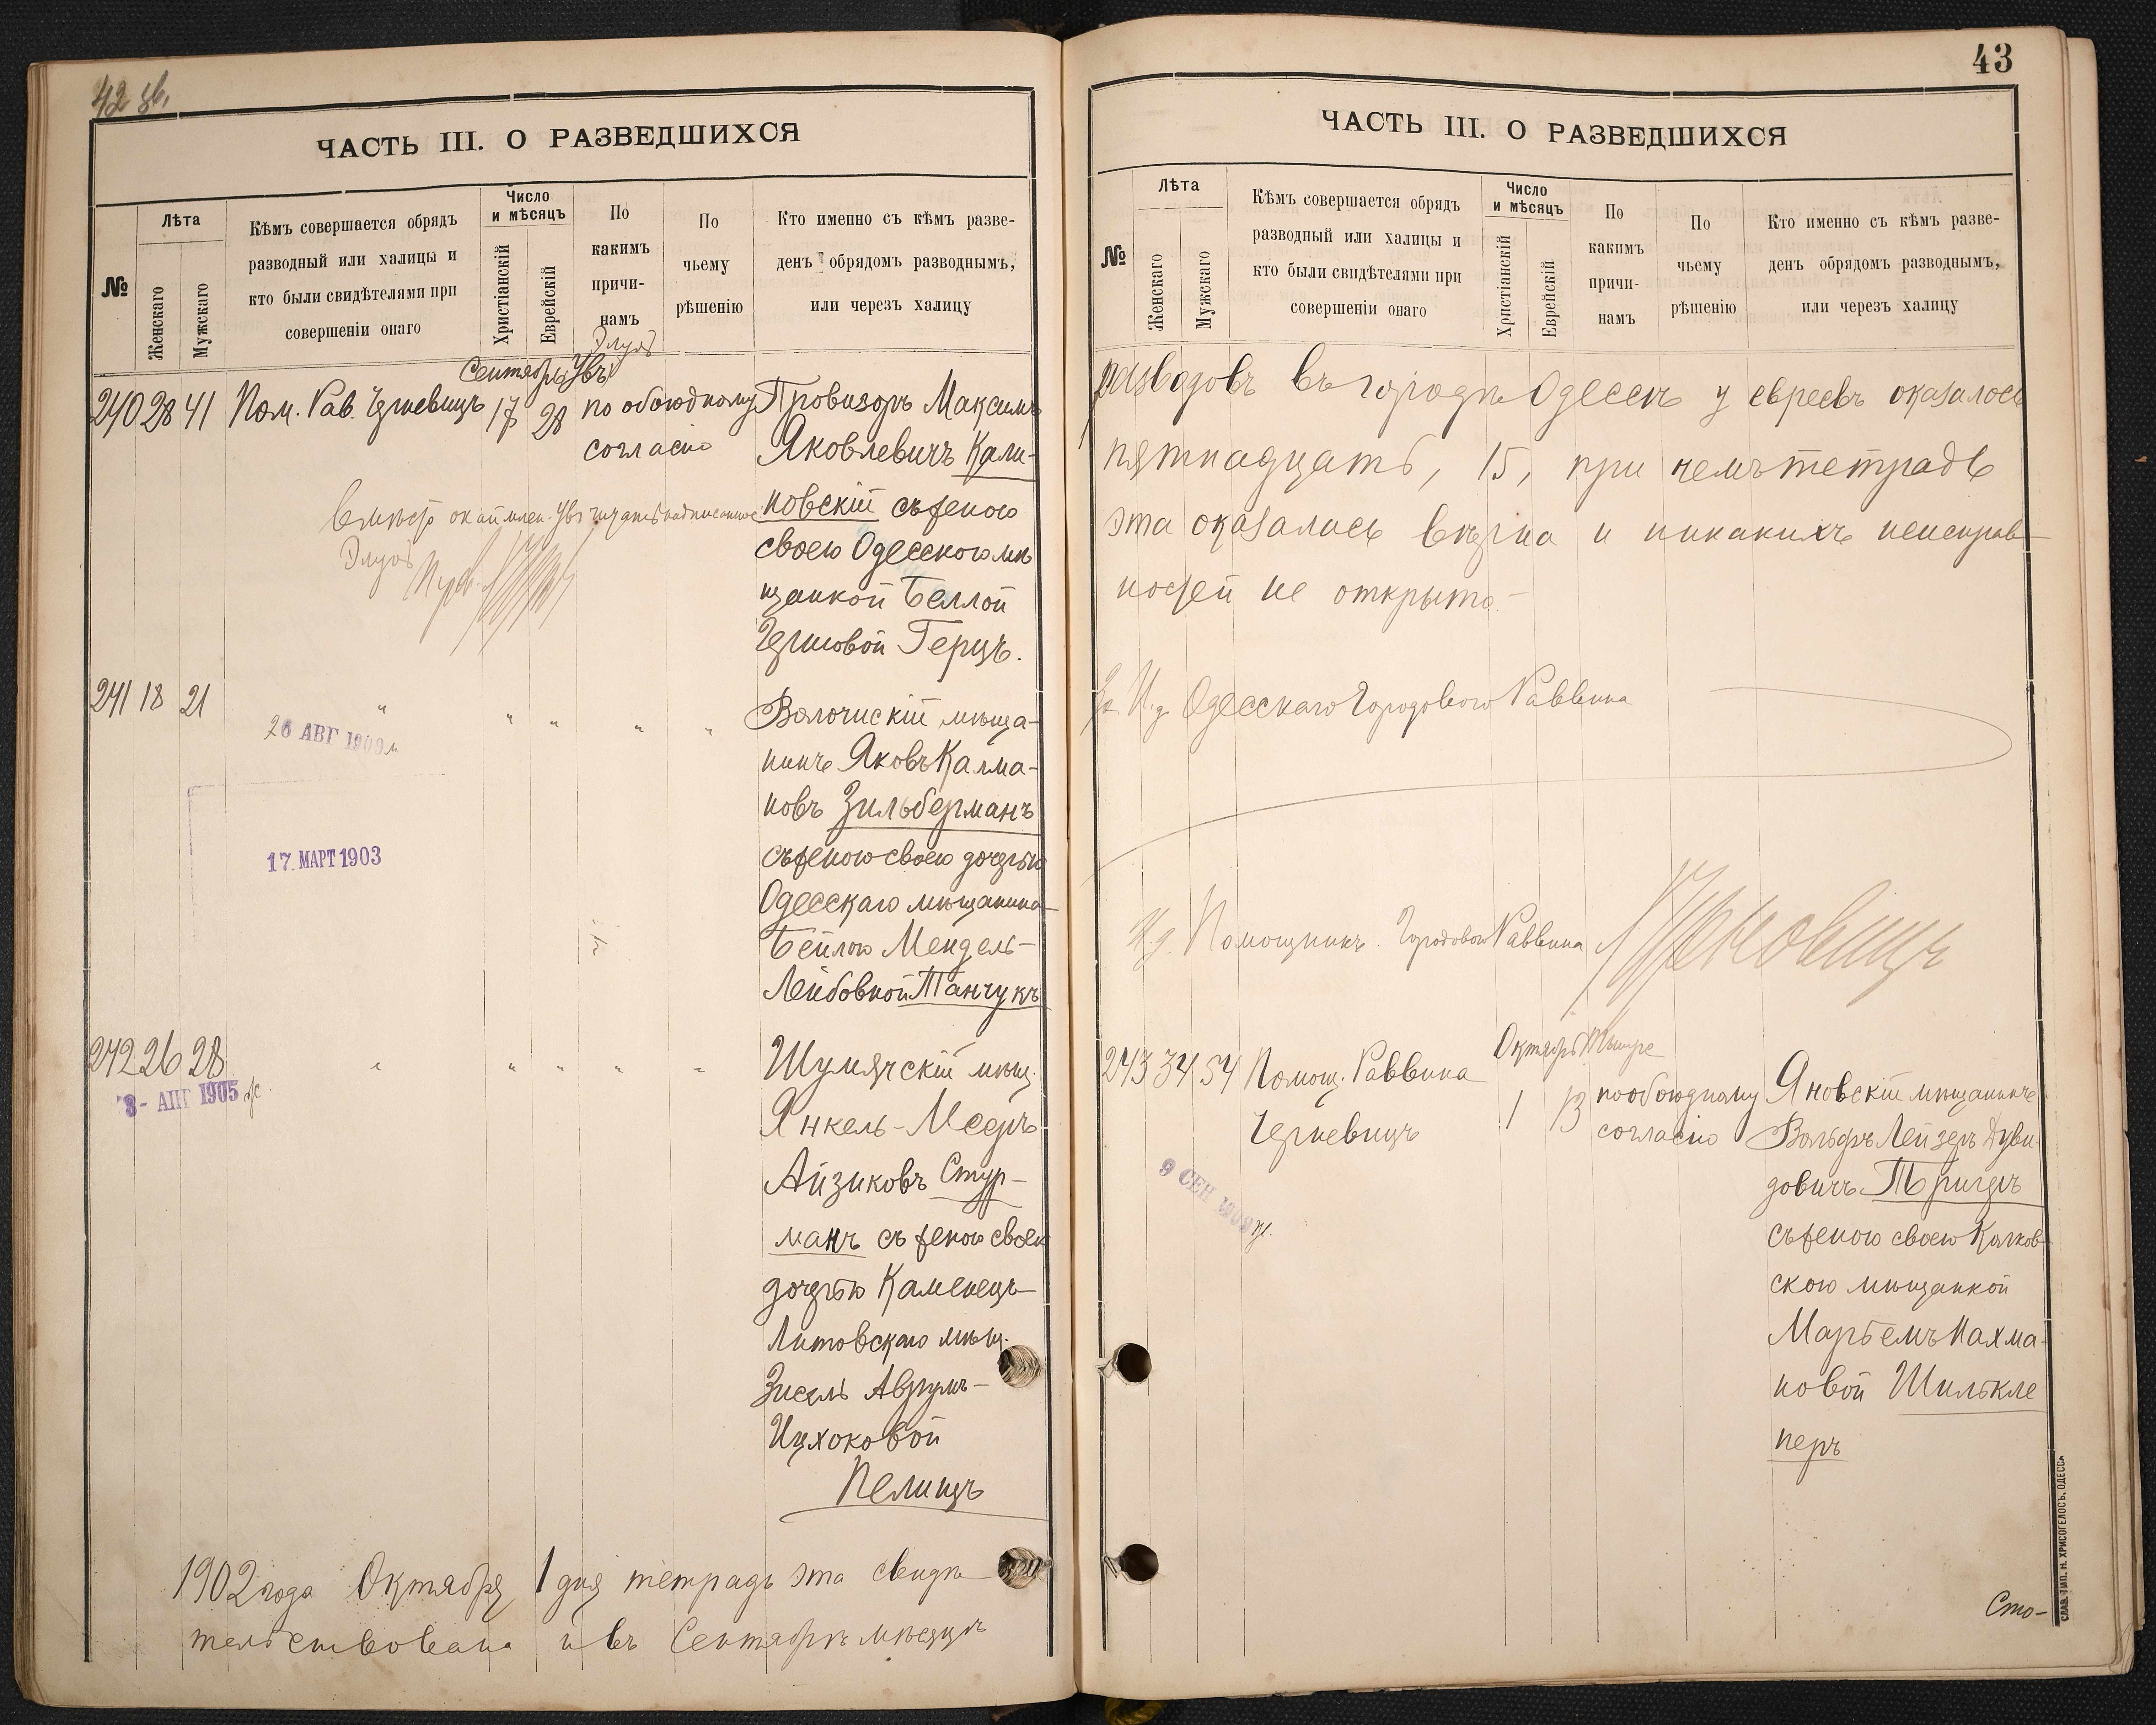 42 зв.
ЧАСТЬ III. О РАЗВЕДШИХСЯ
№
Лѣта
Женскаго
Мужскаго
Кѣмъ совершается обрядъ
разводный или халицы и
кто были свидѣтелями при
совершеніи онаго
Число
и мѣсяцъ
Христіанскій
Еврейскій
По
какимъ
причи-
намъ
По
чьему
рѣшенію
Кто именно съ кѣмъ разве-
денъ обрядомъ разводнымъ,
или черезъ халицу
Элулъ
Сентябрь
240 28 41 Пом. Рав. Черневицъ 17 28 по обоюдному Провизоръ Максимъ
согласію Яковлевичъ Кали-
новскій съ женою
своею Одесскою мѣ
щанкой Беллой
Герцъ.
Элулъ
241 18 21 " " " " " Волочискій мѣща-
нинъ Яковъ Калма-
новъ Зильберманъ
съ женою своею дочерью
Одесскаго мѣщанина
Бейлою Мендель-
Лейбовной Танчукъ
26 АВГ 1909
17. МАРТ 1903
242 26 28 " " " " " Шумячскій мѣщ.
Янкель-Мееръ
Айзиковъ Стур-
манъ съ женою своею
дочерью Каменецъ-
Литовскаго мѣщ.
Зисель Аврумъ-
Ицхоковой
Пелицъ
3- АПГ 1905
1902 года Октября 1 дня тетрадь эта свидѣ
тельствована и въ Сентябрѣ мѣсяцѣ
43
ЧАСТЬ III. О РАЗВЕДШИХСЯ
№
Лѣта
Женскаго
Мужскаго
Кѣмъ совершается обрядъ
разводный или халицы и
кто были свидѣтелями при
совершеніи онаго
Число
и мѣсяцъ
Христіанскій
Еврейскій
По
какимъ
причи-
намъ
По
чьему
рѣшенію
Кто именно съ кѣмъ разве-
денъ обрядомъ разводнымъ,
или черезъ халицу
разводовъ въ городѣ Одессѣ у евреевъ оказалось
пятнадцать, 15, при чемъ тетрадь
эта оказалась вѣрна и никакихъ неисправ-
ностей не открыто.
И.д. Одесскаго Городового Раввина
И.д. Помощникъ Городового Раввина
Октябрь Тишре
243 34 54 Помощ. Раввина 1 13 по обоюдному Яновскій мѣщанинъ
Черневицъ согласію Вольфъ Лейзеръ Дуви
довичъ Тригеръ
съ женою своею Калков
скою мѣщанкой
Марьемъ Нахма-
новой Шилькле
перъ
9 СЕН 1909
Сто-
СЛАВ. ТИП. Н. ХРИСОГЕЛОСЪ, ОДЕССА